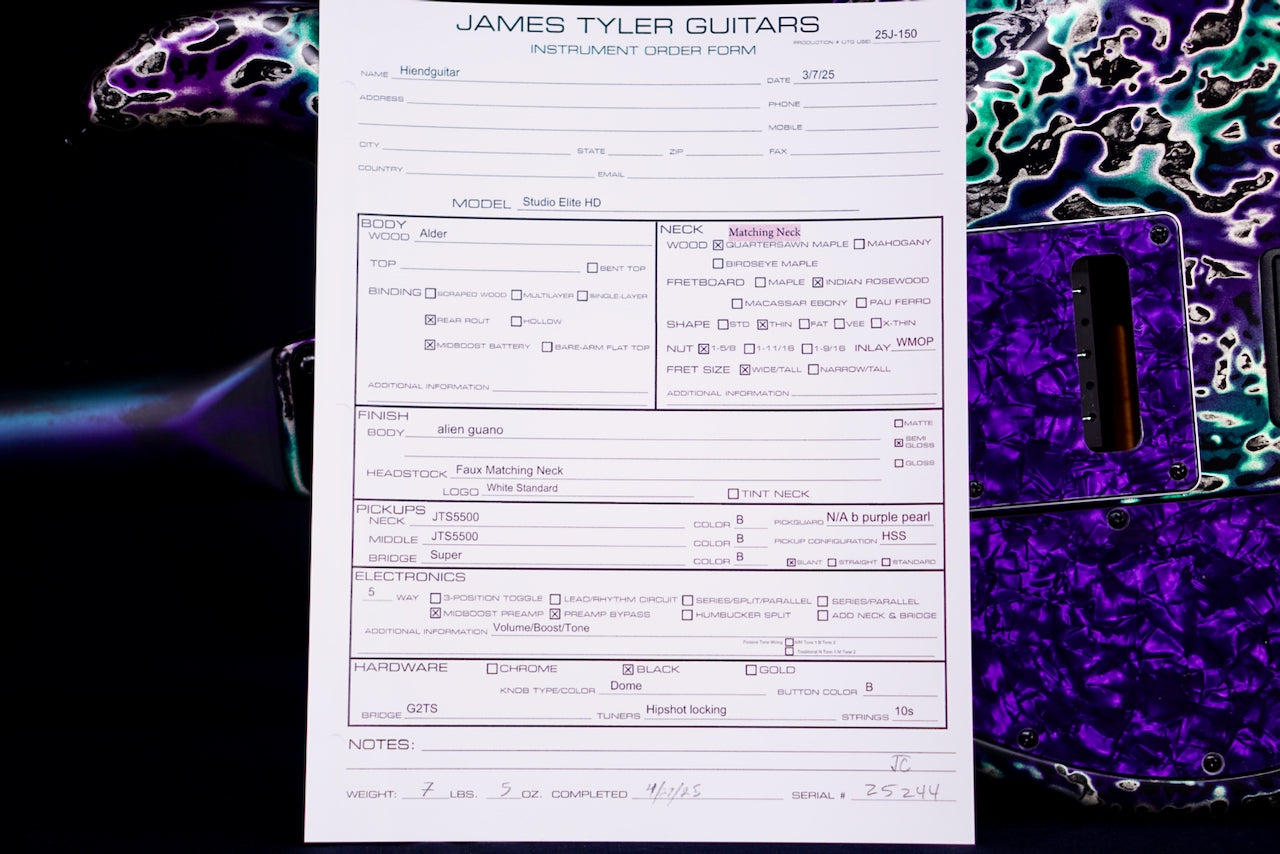 JAMES TYLER GUITARS
INSTRUMENT ORDER FORM
PRODUCTION # (JTG USE) 25J-150
NAME Hiendguitar DATE 3/7/25
ADDRESS PHONE
MOBILE
CITY STATE ZIP FAX
COUNTRY EMAIL
MODEL Studio Elite HD
BODY
WOOD Alder
TOP BENT TOP
BINDING SCRAPED WOOD MULTILAYER SINGLE-LAYER
☒ REAR ROUT ☐ HOLLOW
☒ MIDBOOST BATTERY ☐ BARE-ARM FLAT TOP
ADDITIONAL INFORMATION
NECK Matching Neck
WOOD ☒ QUARTERSAWN MAPLE ☐ MAHOGANY
☐ BIRDSEYE MAPLE
FRETBOARD ☐ MAPLE ☒ INDIAN ROSEWOOD
☐ MACASSAR EBONY ☐ PAU FERRO
SHAPE ☐ STD ☒ THIN ☐ FAT ☐ VEE ☐ X-THIN
NUT ☒ 1-5/8 ☐ 1-11/16 ☐ 1-9/16 INLAY WMOP
FRET SIZE ☒ WIDE/TALL ☐ NARROW/TALL
ADDITIONAL INFORMATION
FINISH
BODY alien guano
☐ MATTE
☒ SEMI GLOSS
☐ GLOSS
HEADSTOCK Faux Matching Neck
LOGO White Standard ☐ TINT NECK
PICKUPS
NECK JTS5500 COLOR B PICKGUARD N/A b purple pearl
MIDDLE JTS5500 COLOR B PICKUP CONFIGURATION HSS
BRIDGE Super COLOR B ☒ SLANT ☐ STRAIGHT ☐ STANDARD
ELECTRONICS
5 WAY ☐ 3-POSITION TOGGLE ☐ LEAD/RHYTHM CIRCUIT ☐ SERIES/SPLIT/PARALLEL ☐ SERIES/PARALLEL
☒ MIDBOOST PREAMP ☒ PREAMP BYPASS ☐ HUMBUCKER SPLIT ☐ ADD NECK & BRIDGE
ADDITIONAL INFORMATION Volume/Boost/Tone
Passive Tone Wiring ☐ N/M Tone 1 B Tone 2
☐ Traditional N Tone 1 M Tone 2
HARDWARE ☐ CHROME ☒ BLACK ☐ GOLD
KNOB TYPE/COLOR Dome BUTTON COLOR B
BRIDGE G2TS TUNERS Hipshot locking STRINGS 10s
NOTES:
JC
WEIGHT: 7 LBS. 5 OZ. COMPLETED SERIAL # 25244